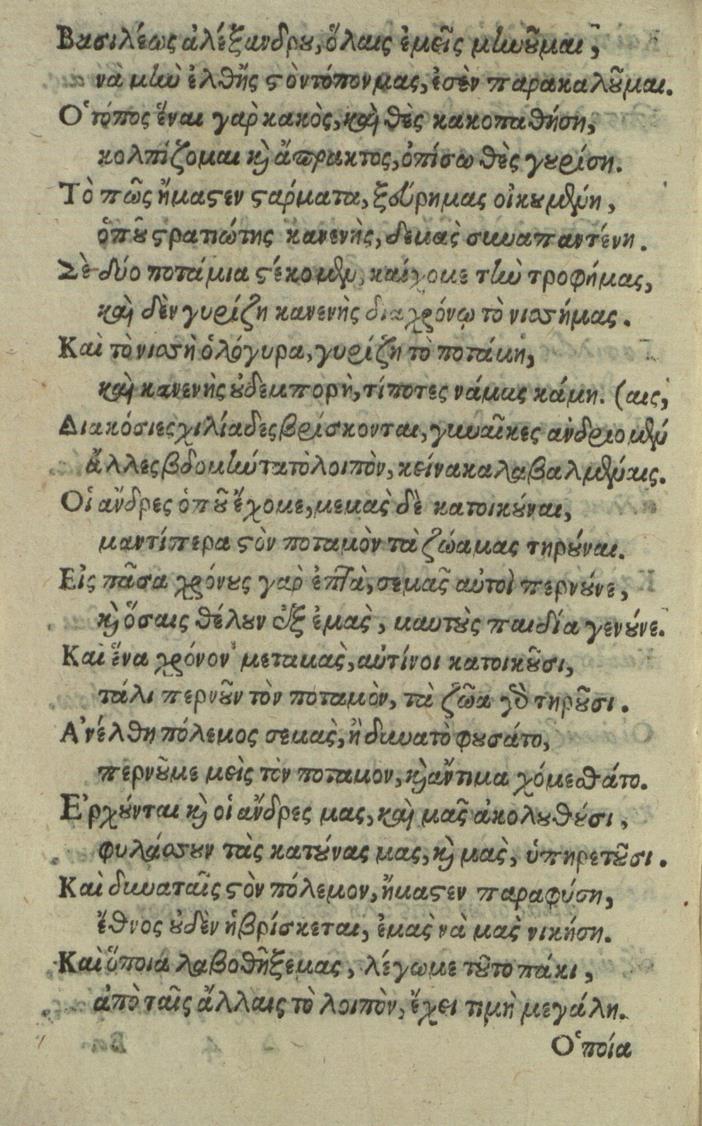 Βασιλέως ἀλέξανδρου, ὅλαις ἐμεῖς μηνοῦμαι,
νὰ μὴν ἐλθῆς ςὸντόπονμας, ἐσὲν παρακαλοῦμαι.
Ὁ τόπος ἔναι γαρ κακὸς, καὶ θὲς κακοπαθήση,
κολπίζομαι κὶ ἄπρακτος, ὀπίσω θὲς γυρίση.
Τὸ πῶς ἤμαςεν ςάρματα, ξούρημας οἰκουμένη,
ὁποῦ ςρατιώτης κανενὴς, δεμας συναπαντένη.
Σὲ δύο ποτάμια ςέκομεν, καίχομε τὴν τροφήμας,
καὶ δὲν γυρίζη κανενὴς διαχρόνῳ τὸ νισσήμας.
Καὶ τονισσὴ ὁλόγυρα, γυρίζη τὸ ποτάμη,
καὶ κανενὴς οὐδεμπορὴ, τίποτες νάμας κάμη. (αις,
Διακόσιες χιλίαδες βρίσκονται, γυναῖκες ἀνδριομεν
ἄλλες βδομῆντα τὸ λοιπὸν, κείνακαλαβαλμέναις.
Οἱ ἄνδρες ὁποῦ ἔχομε, μεμας δὲ κατοικούναι,
μαντίπερα ςὸν ποταμὸν τὰ ζώαμας τηρούναι.
Εἰς πᾶσα χρόνους γαρ ἐπτὰ, σεμας αὐτοὶ περνούνε,
κὶ ὅσαις θέλουν ἐξ ἐμας, μαυτοὺς παιδία γενούνε.
Καὶ ἕνα χρόνον μεταμας, αὐτίνοι κατοικοῦσι,
τάλι περνοῦν τὸν ποταμὸν, τὰ ζῶα γὸ τηροῦσι.
Ἀνέλθη πόλεμος σεμας, ἢ δυνατὸ φυσάτο,
περνοῦμε μεὶς τὸν ποταμον, κὶ ἄντιμα χόμεσθάτο.
Ἐρχούνται κὶ οἱ ἄνδρες μας, καὶ μας ἀκολουθούσι,
φυλάσσουν τὰς κατούνας μας, κὶ μας, ὑπηρετοῦσι.
Καὶ δυναταῖς ςὸν πόλεμον, ἤμαςεν παραφύση,
ἔθνος οὐδὲν ἡβρίσκεται, ἐμας νὰ μας νικήση.
Καὶ ὅποια λαβοθῆξεμας, λέγωμε τοῦτο πάκι,
ἀπὸ ταῖς ἄλλαις τὸ λοιπὸν, ἔχει τιμὴ μεγάλη.
Ὁποία